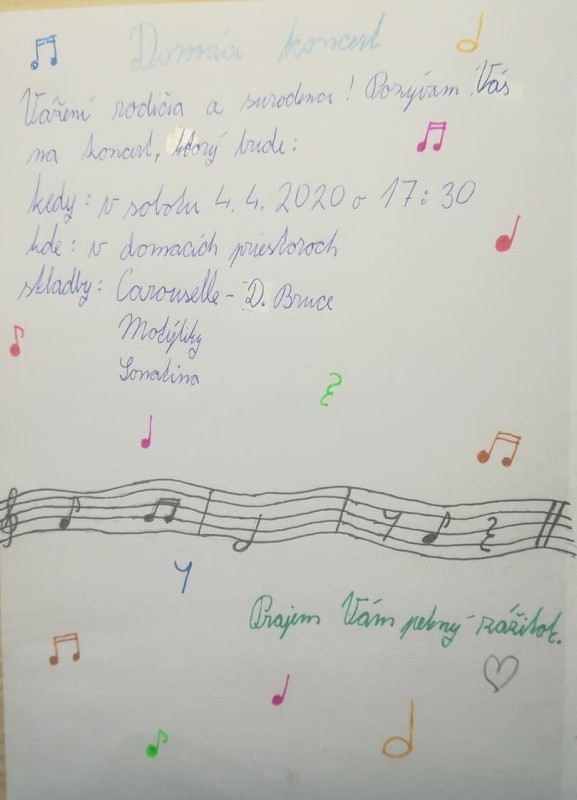 Domáci koncert
Vážení rodičia a surodenci! Pozývam Vás
na koncert, ktorý bude:
kedy: v sobotu 4. 4. 2020 o 17:30
kde: v domacich priestoroch
skladby: Carouselle - D. Bruce
Motýliky
Sonatina
Prajem Vám pekný zážitok.